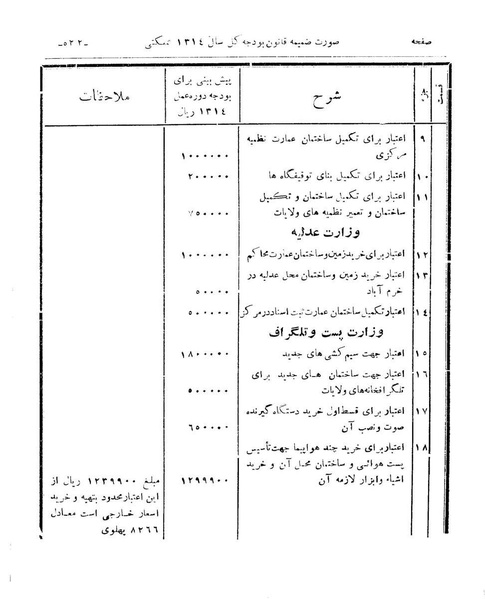 صفحه صورت ضمیمه قانون بودجه کل سال ۱۳۱۴ مملکتی -۵۲۲-
قسمت جزء شرح پیش بینی برای بودجه دوره عمل ۱۳۱۴ ریال ملاحظات
۹ اعتبار برای تکمیل ساختمان عمارت نظمیه
مرکزی ۱۰۰۰۰۰۰
۱۰ اعتبار برای تکمیل بنای توقیفگاه ها ۲۰۰۰۰۰
۱۱ اعتبار برای تکمیل ساختمان و تکمیل
ساختمان و تعمیر نظمیه های ولایات ۷۵۰۰۰۰
وزارت عدلیه
۱۲ اعتبار برای خرید زمین و ساختمان عمارت محاکم ۱۰۰۰۰۰۰
۱۳ اعتبار خرید زمین و ساختمان محل عدلیه در
خرم آباد ۵۰۰۰۰
۱۴ اعتبار تکمیل ساختمان عمارت ثبت اسناد در مرکز ۵۰۰۰۰۰
وزارت پست و تلگراف
۱۵ اعتبار جهت سیم کشی های جدید ۱۸۰۰۰۰۰
۱۶ اعتبار جهت ساختمان های جدید برای
تلگرافخانه های ولایات ۵۰۰۰۰۰
۱۷ اعتبار برای قسط اول خرید دستگاه گیرنده
صوت و نصب آن ۶۵۰۰۰۰
۱۸ اعتبار برای خرید چند هواپیما جهت تأسیس
پست هوائی و ساختمان محل آن و خرید
اشیاء و ابزار لازمه آن ۱۲۹۹۹۰۰ مبلغ ۱۲۳۹۹۰۰ ریال از
این اعتبار محدود بتهیه و خرید
اسعار خارجی است معادل
۸۲۶۶ پهلوی